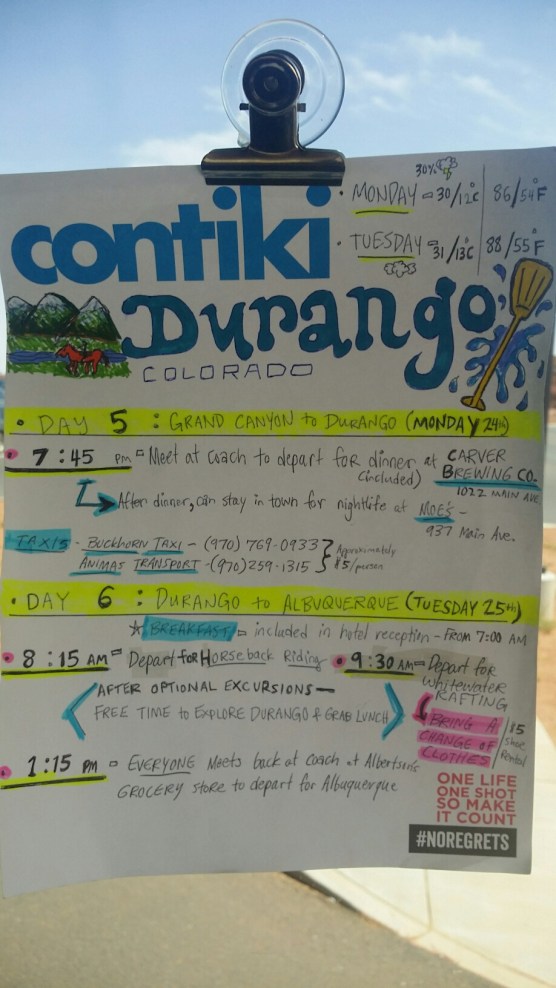 30%
• MONDAY = 30/12°C | 86/54°F
contiki
• TUESDAY = 31/13°C | 88/55°F
Durango
COLORADO
• DAY 5 : GRAND CANYON to DURANGO (MONDAY 24th)
• 7:45 PM = Meet at coach to depart for dinner at CARVER BREWING CO.
(included)
1022 MAIN AVE
After dinner, can stay in town for nightlife at MOE'S -
937 Main Ave.
TAXIS - BUCKHORN TAXI - (970) 769-0933
ANIMAS TRANSPORT - (970) 259-1315
Approximately
$5/person
• DAY 6 : DURANGO to ALBUQUERQUE (TUESDAY 25th)
* BREAKFAST = included in hotel reception - FROM 7:00 AM
• 8:15 AM = Depart for Horseback Riding
• 9:30 AM = Depart for
Whitewater
RAFTING
AFTER OPTIONAL EXCURSIONS -
FREE TIME to EXPLORE DURANGO & GRAB LUNCH
BRING A
CHANGE OF
CLOTHES
$5
Shoe
Rental
• 1:15 PM = EVERYONE Meets back at coach at Albertson's
GROCERY store to depart for Albuquerque
ONE LIFE
ONE SHOT
SO MAKE
IT COUNT
#NOREGRETS